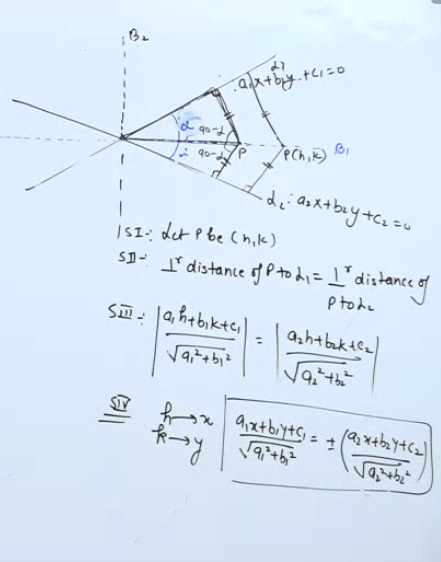 B₂
L₁
a₁x+b₁y+c₁=0
α
90-α
α
90-α
P
P(h,k)
B₁
L₂: a₂x+b₂y+c₂=0
SI-: Let P be (h,k)
SII-: ⊥ʳ distance of P to L₁ = ⊥ʳ distance of
P to L₂
SIII-: |a₁h+b₁k+c₁ / √a₁²+b₁²| = |a₂h+b₂k+c₂ / √a₂²+b₂²|
SIV h→x
k→y
a₁x+b₁y+c₁ / √a₁²+b₁² = ± (a₂x+b₂y+c₂ / √a₂²+b₂²)